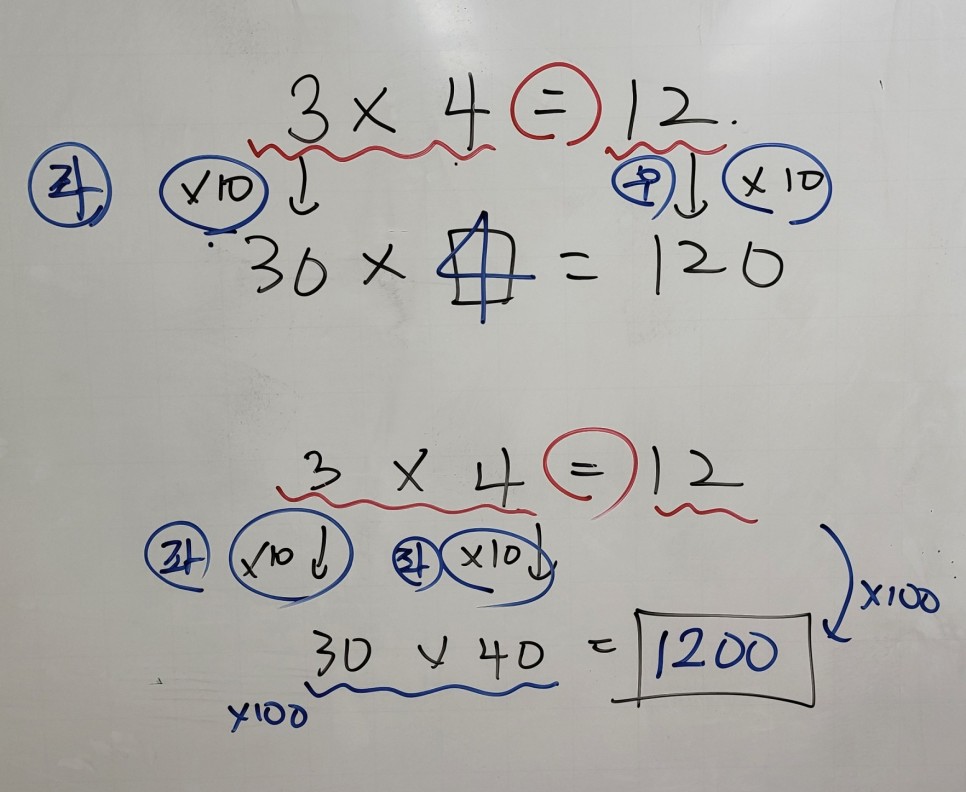 3 × 4 = 12.
좌 ×10 ↓ 우 ↓ ×10
30 × 4 = 120
3 × 4 = 12
좌 ×10 ↓ 좌 ×10 ↓
×100
30 × 40 = 1200
×100